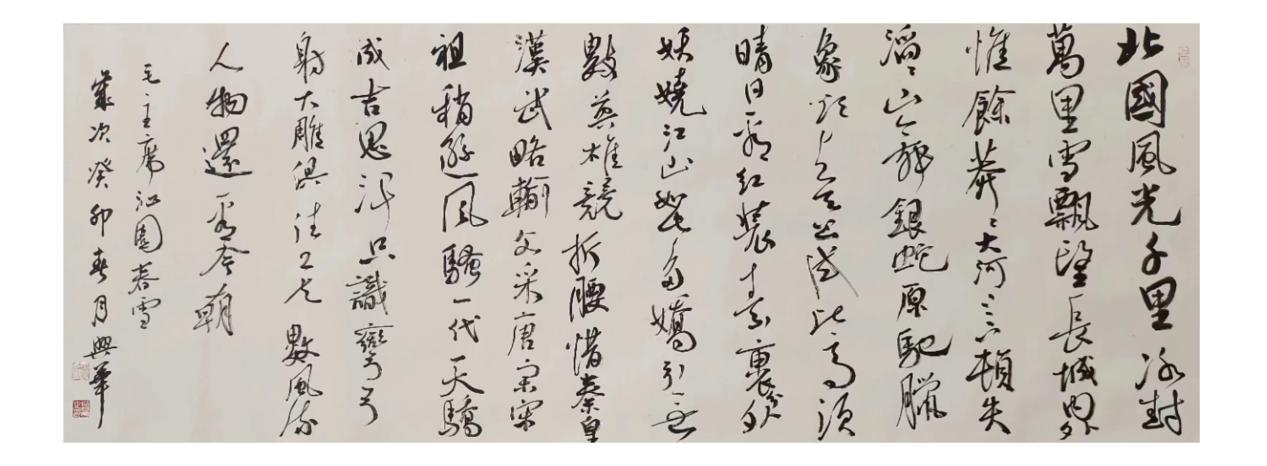 北國風光千里冰封
萬里雪飄望長城內外
惟餘莽〻大河上下頓失
滔〻山舞銀蛇原馳臘
象欲與天公試比高須
晴日看紅裝素裹分外
妖嬈江山如此多嬌引無
數英雄競折腰惜秦皇
漢武略輸文采唐宗宋
祖稍遜風騷一代天驕
成吉思汗只識彎弓
射大雕俱往矣數風流
人物還看今朝
毛主席沁園春雪
歲次癸卯春月興華